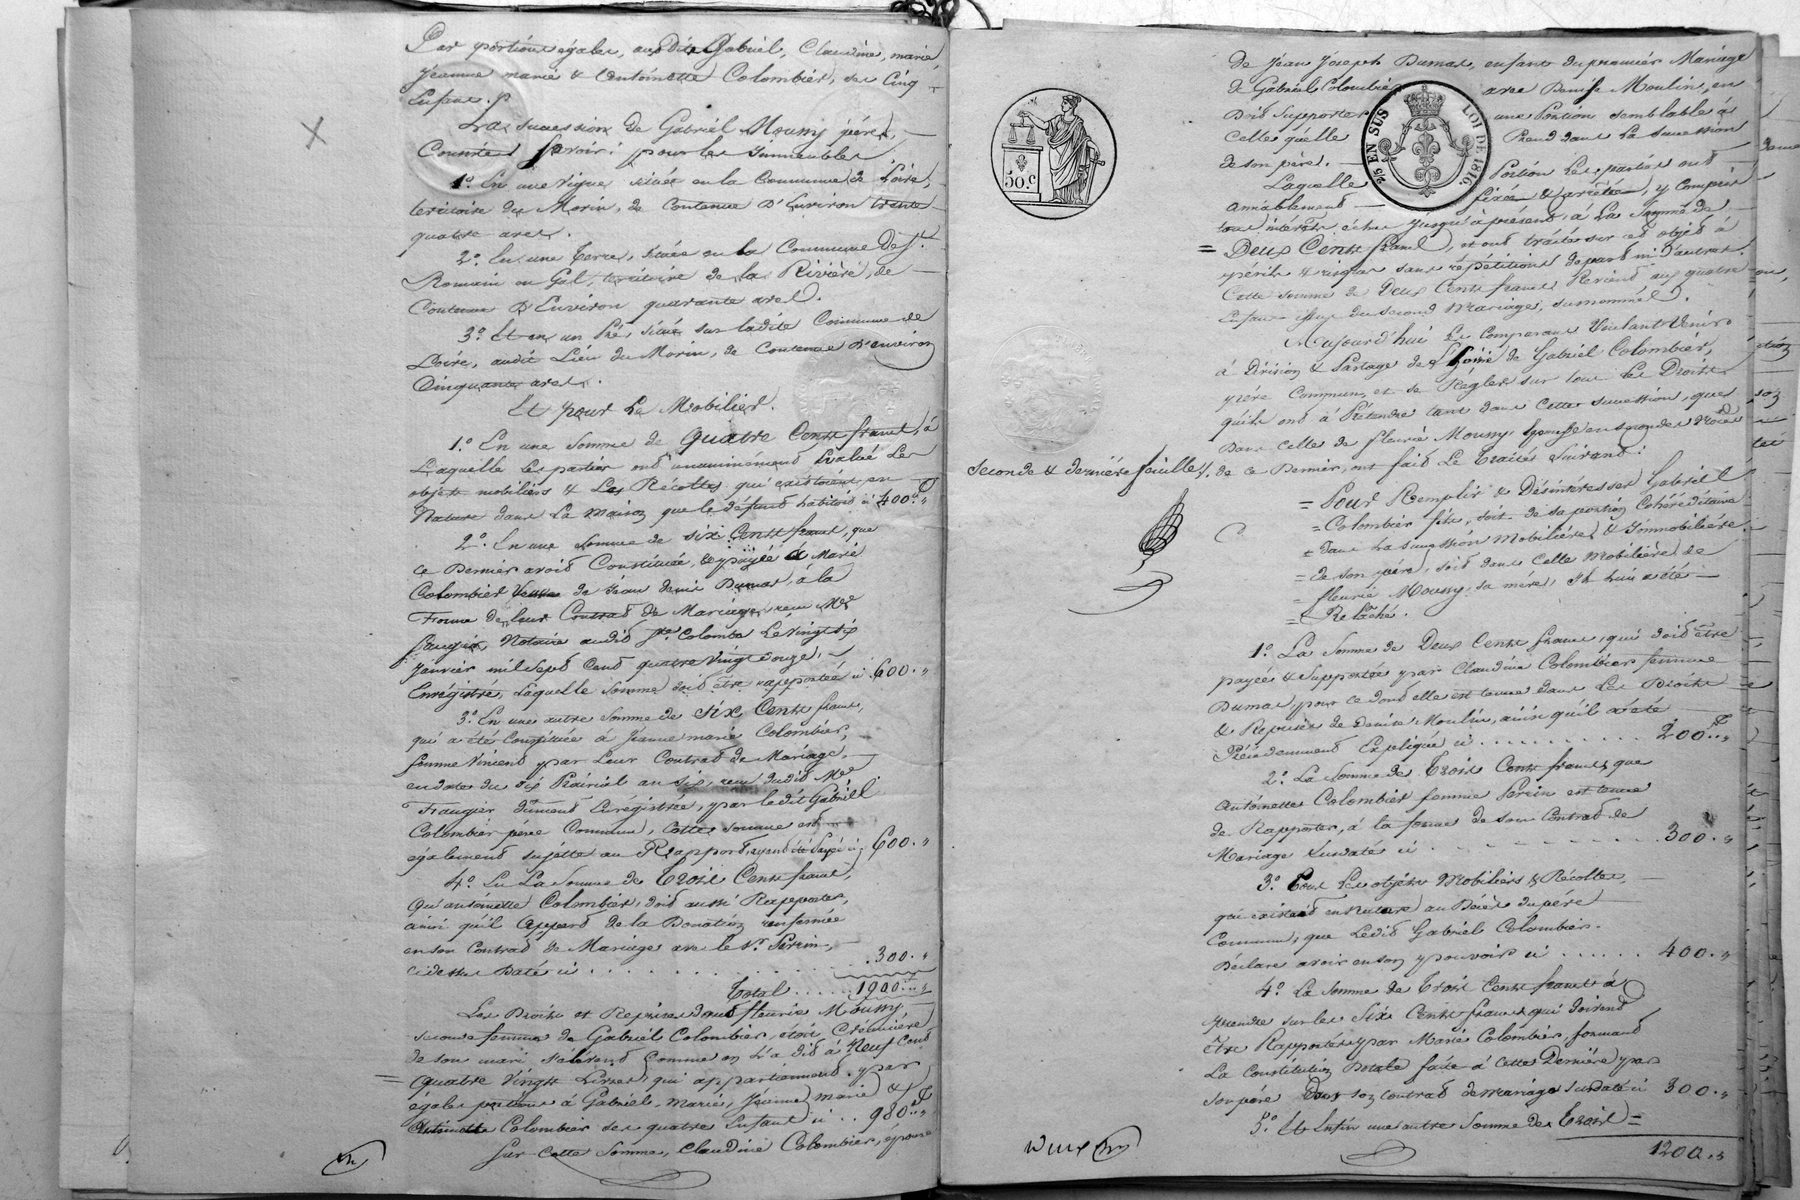 Par portions égales, auxdits Gabriel, Claudine, marie,
Jeanne marie & Antoinette Colombier, ses Cinq
Enfans.
La succession de Gabriel Mouny père,
Consiste Savoir: pour les immeubles
1º En une Vigne située en la Commune de Loire,
territoire du Morin, de Contenue D'Environ trente
quatre ares.
2º En une terre, située en la Commune de St.
Romain en Gal, territoire de la Rivière, de
Contenue D'Environ quarante ares.
3º Et en un Pré, situé sur ladite Commune de
Loire, audit Lieu du Morin, de Contenue D'environ
Cinquante ares.
Et pour Le Mobilier.
1º En une Somme de quatre Cents francs, à
Laquelle les parties ont unanimément Evalué Les
objets mobiliers & Les Récoltes qui existoient en
Nature dans La maison que le défunt habitoit ci 400 "
2º En une somme de six Cents francs, que
Ce Dernier avoit Constituée, & payée à Marie
Colombier Veuve de Jean denis Dumas, à la
Forme de leur Contrat de Mariage, reçu Me
Notaire audit Ste Colombe Le Vingt six
Janvier mil sept Cent quatre Vingt onze,
Enrégistré, Laquelle Somme doit être rapportée ci 600 "
3º En une autre Somme de Six Cents francs,
qui a été Constituée à Jeanne marie Colombier,
femme Vincent par Leur Contrat de Mariage,
en date du six Prairial an six, reçu dudit Me
Frangier dument Enrégistrée, par ledit Gabriel
Colombier père Commun, Cette somme est
également sujette au Rapport, ayant été Payée ci 600 "
4º En La Somme de Trois Cents francs,
Qu'antoinette Colombier, doit aussi Rapporter,
ainsi qu'il appert de la Donation renfermée
en son Contrat de Mariage avec le Sr Perrin,
ci dessus Daté ci . . . . . . . 300 "
Total . . . . . 1900 "
Les Droits et Reprises dont fleurie Mouny
seconde femme de Gabriel Colombier, étoit Créancière
de son mari s'élèvent Comme on L'a dit à Neuf Cent
= quatre Vingts Livres, qui appartiennent par
égales portions à Gabriel, Marie, Jeanne marie &
Antoinette Colombier ses quatre Enfans ci . . 980 "
Sur Cette Somme, Claudine Colombier, épouse
de Jean Joseph Dumas, enfant du premier Mariage
de Gabriel Colombier avec Denise Moulin, en
Doit Supporter une Portion semblable à
Celle qu'elle Prend dans La succession
de son père.
Laquelle Portion Les parties ont
amiablement fixée & arrêtée, y compris
tous intérêts échus jusqu'à présent, à La Somme de
= Deux Cents francs, et ont traité sur cet objet à
périls & risques sans répétitions de part ni d'autres.
Cette somme de Deux Cents francs Revient aux quatre
Enfans issus du second Mariage, susnommés.
Aujourd'hui Les Comparans Voulant Venir
à Division & Partage de l'hoirie de Gabriel Colombier,
père Commun, et se Régler sur tous Les Droits
qu'ils ont à Prétendre tant dans Cette succession, que
Dans Celle de fleurie Mouny, épouse en secondes Noces
de ce Dernier, ont fait Le Traité Suivant:
= Pour Remplir & Désintéresser Gabriel
= Colombier fils, soit de sa portion Cohéréditaire
= dans La succession Mobilière & Immobilière
= de son père, soit dans Celle Mobilière de
= fleurie Mouny, sa mère, Il lui a été
= Relâché.
1º La Somme de Deux Cents francs, qui doit être
payée & Supportée par Claudine Colombier femme
Dumas, pour ce dont elle est tenue dans Les Droits
& Reprises de Denise Moulin, ainsi qu'il a été
Précédemment Expliqué ci . . . . . . . . . 200 "
2º La Somme de Trois Cents francs, que
Antoinette Colombier femme Perrin est tenue
de Rapporter, à la forme de son Contrat de
Mariage Susdaté ci . . . . . . . . . 300 "
3º Tous Les objets Mobiliers & Récoltes,
qui existent en Nature au Décès du père
Commun, que Ledit Gabriel Colombier
Déclare avoir en son pouvoir ci . . . . . . 400 "
4º La Somme de Trois Cents francs à
prendre sur les Six Cents francs qui doivent
être Rapportés par Marie Colombier, formant
La Constitution Dotale faite à Cette Dernière par
son père Dans son Contrat de mariage susdaté ci 300 "
5º Et Enfin une autre Somme de Trois =
1200 "
Seconde & dernière feuille.
50.C
25 EN SUS
LOI DE 1816.